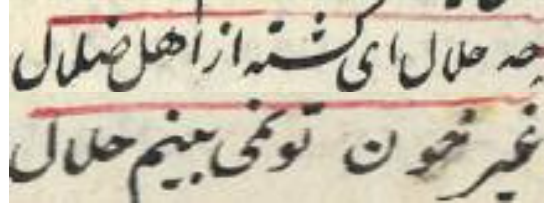 چه حلال ای گشته از اهل ضلال
غیر خون تو نمی بینم حلال